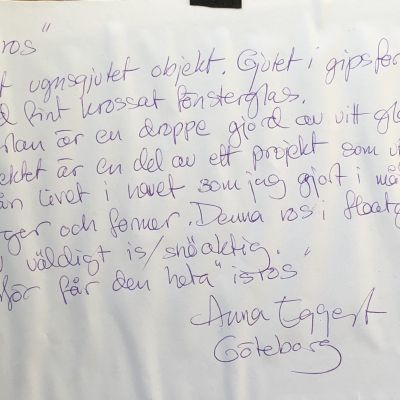 ros"
ugnsgjutet objekt. Gjutet i gipsfor
fint krossat fönsterglas.
är en droppe gjord av vitt gla
ektet är en del av ett projekt som vi
ån livet i havet som jag gjort i må
ger och former. Denna ros i floatg
väldigt is/snöaktig.
för får den heta "isros"
Anna Eggert
Göteborg